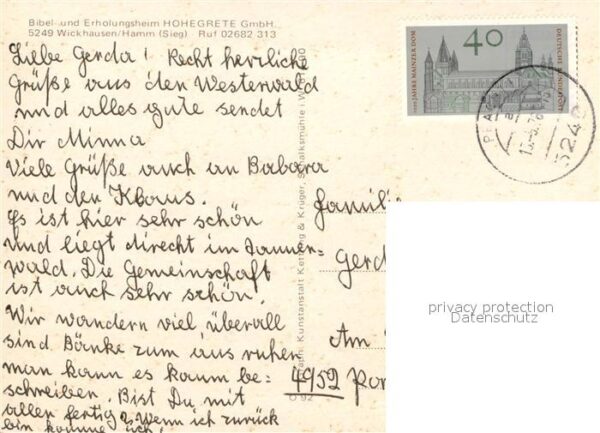 Bibel- und Erholungsheim HOHEGRETE GmbH.
5249 Wickhausen/Hamm (Sieg) Ruf 02682 313
Liebe Gerda! Recht herzliche
Grüße aus den Westerwald
und alles gute sendet
Dir Minna
Viele Grüße auch an Babara
und den Klaus.
Es ist hier sehr schön
und liegt direcht im Tannen-
wald. Die Gemeinschaft
ist auch sehr schön.
Wir wandern viel überall
sind Bänke zum aus ruhen
man kann es kaum be-
schreiben. Bist Du mit
allen fertig? Wenn ich zurück
bin komme ich
Kunstanstalt Ketting & Krüger, Schalksmühle i W
40
1000 JAHRE MAINZER DOM
DEUTSCHE BUNDESPOST
5248
Familie
Gerd
Am
4952 Por
privacy protection
Datenschutz